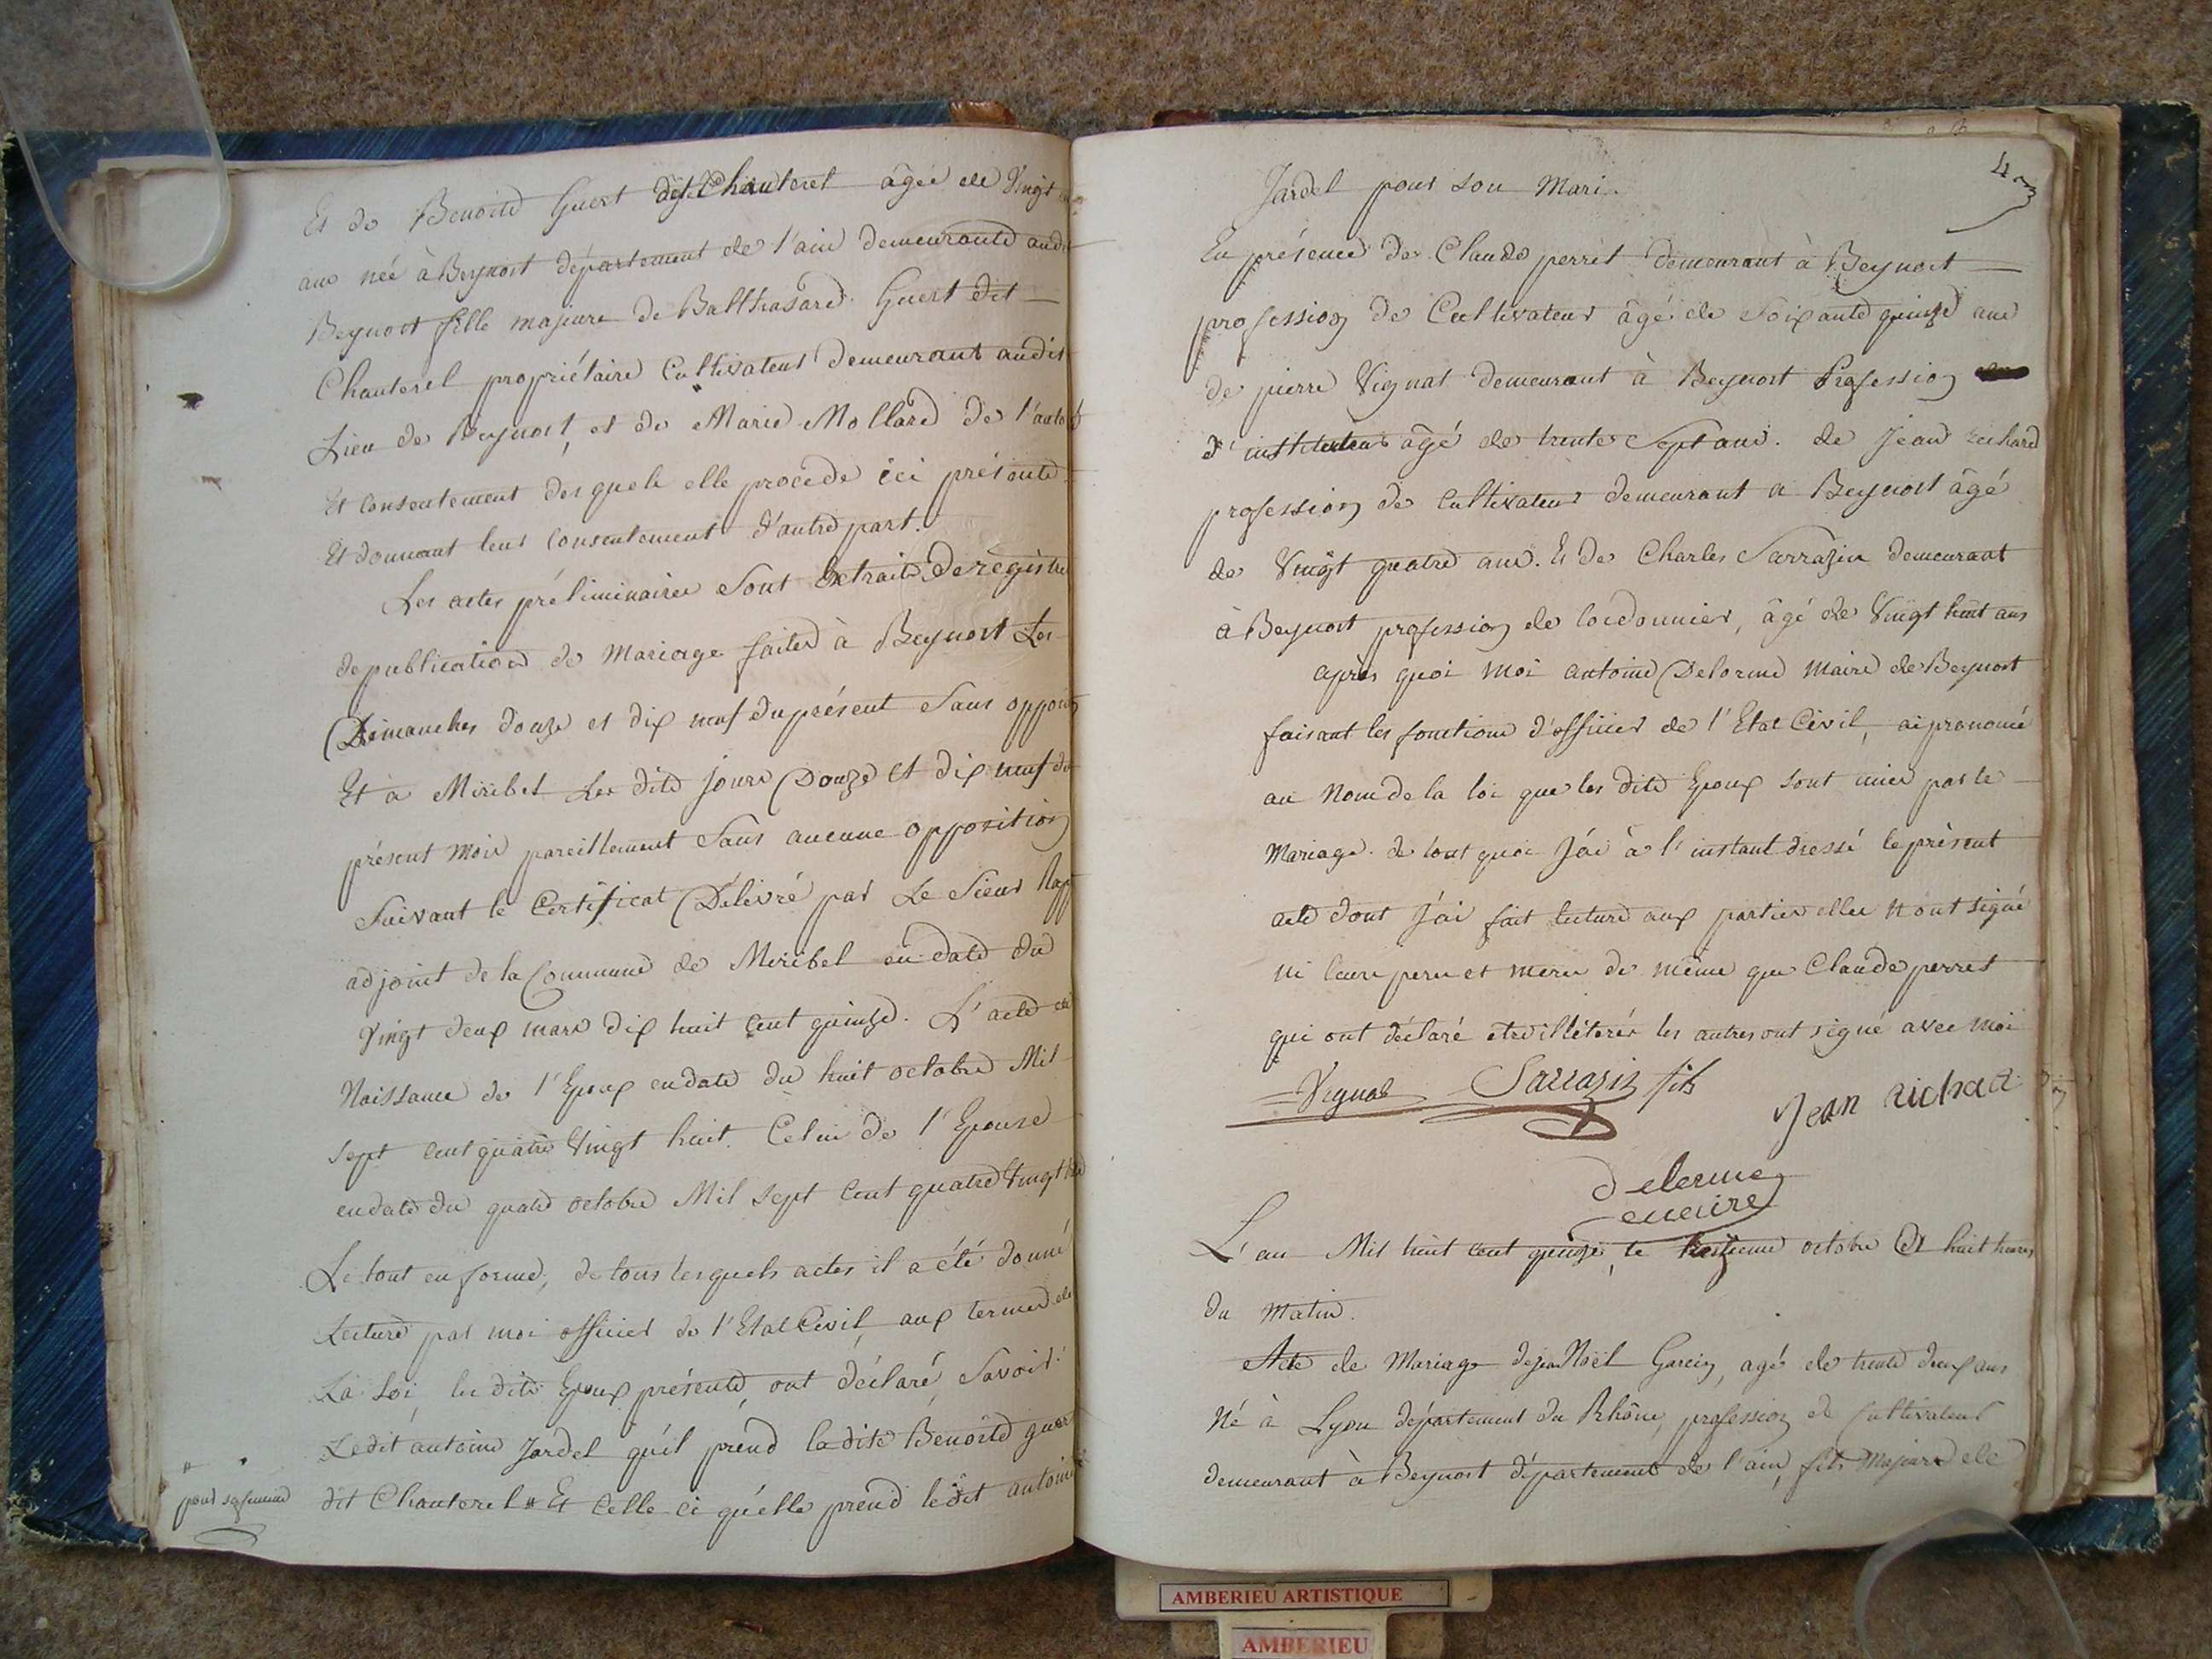 Et de Benoite Guert dit Chanterel âgée de Vingt
ans née à Beynost département de l'ain demeurante audit
Beynost fille majeure de Balthasard Guert dit
Chanterel propriétaire Cultivateur demeurant audit
Lieu de Beynost, et de Marie Mollard de l'autorité
Et Consentement desquels elle procede ici présents
Et donnant leur Consentement d'autre part.
Les actes préliminaires Sont Extraits de registre
de publication de Mariage faites à Beynost Les
Dimanches douze et dix neuf du présent Sans opposition
Et à Miribel Les dits jours Douze et dix neuf du
présent mois pareillement Sans aucune opposition
Suivant le Certificat Délivré par Le Sieur
adjoint de la Commune de Miribel en date du
Vingt deux mars dix huit Cent quinze. L'acte de
Naissance de l'Epoux en date du huit octobre Mil
Sept Cent quatre Vingt huit. Celui de l'Epouse
en date du quatre octobre Mil Sept Cent quatre Vingt
Le tout en forme, de tous lesquels actes il a été donné
Lecture par moi officier de l'Etat Civil, aux termes de
La Loi, les dits Epoux présents, ont déclaré, Savoir:
Ledit antoine Jardel qu'il prend la dite Benoite guert
dit Chanterel # Et Celle ci qu'elle prend ledit antoine
#
pour sa femme
43
Jardel pour son Mari.
En présence de Claude perret demeurant à Beynost
profession de Cultivateur âgé de Soixante quinze ans
de pierre Vignat demeurant à Beynost Profession
d'instituteur âgé de trente Sept ans. de Jean richard
profession de Cultivateur demeurant a Beynost âgé
de Vingt quatre ans. Et de Charles Sarrazin demeurant
à Beynost profession de Cordonnier, âgé de Vingt huit ans
après quoi moi antoine Delorme Maire de Beynost
faisant les fonctions d'officier de l'Etat Civil, ai prononcé
au Nom de la loi que les dits Epoux sont unis par le
Mariage. de tout quoi J'ai à l'instant dressé le présent
acte dont J'ai fait lecture aux parties elles n'ont signé
ni leurs peres et meres de même que Claude perret
qui ont déclaré etre illétérés les autres ont signé avec moi
Vignat Sarrazin fils Jean richard
delorme
maire
L'an Mil huit Cent quinze, le treizieme octobre à huit heures
du Matin.
Acte de Mariage de jean Noël Garcin, agé de trente deux ans
Né à Lyon département du Rhône, profession de Cultivateur
demeurant à Beynost département de l'ain, fils Majeur de
AMBERIEU ARTISTIQUE
AMBERIEU